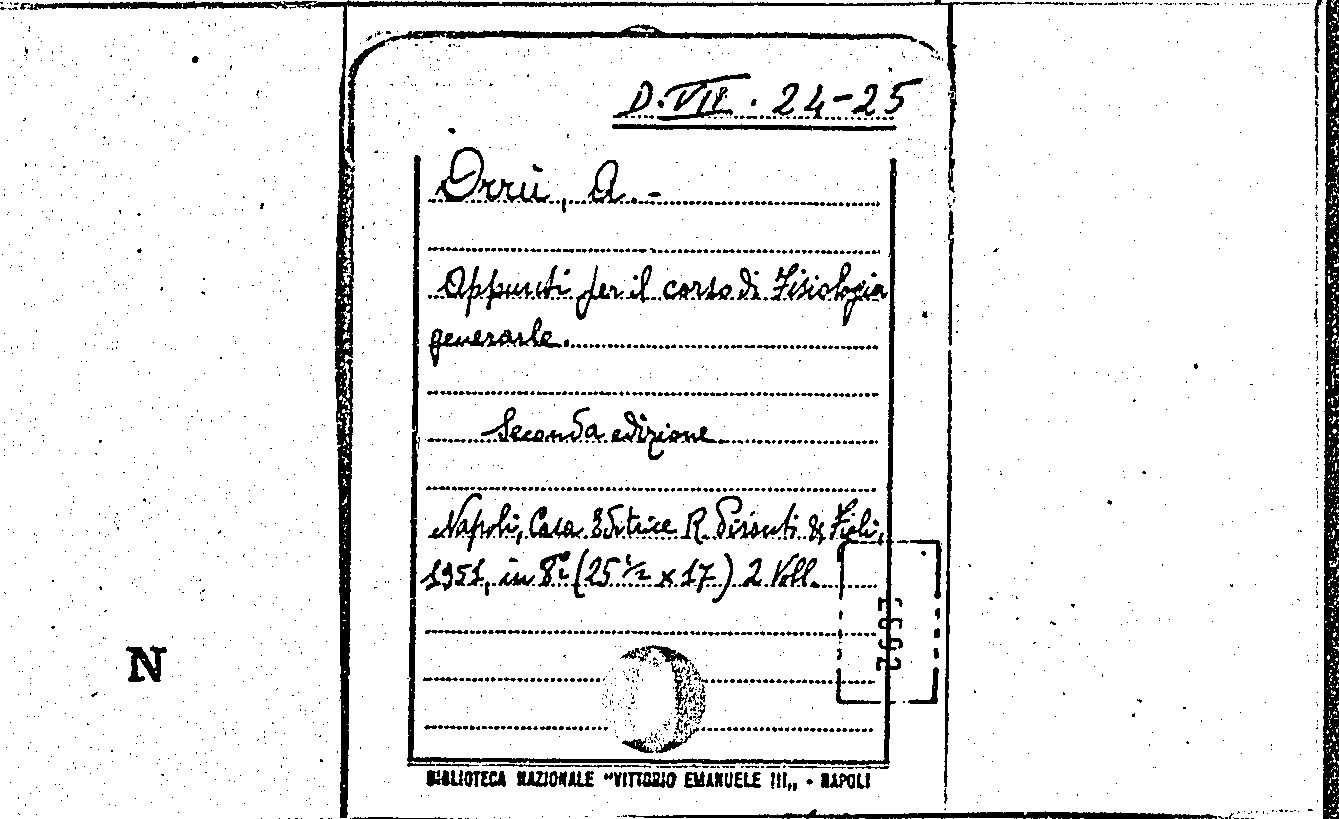 D.VII.24-25
Orrù, A.-
Appunti per il corso di Fisiologia
generarle.
Seconda edizione
Napoli, Casa Editrice R. Pironti & Figli,
1951, in 8º (25 ½ x 17) 2 Voll.
N
BIBLIOTECA NAZIONALE "VITTORIO EMANUELE III„ - NAPOLI